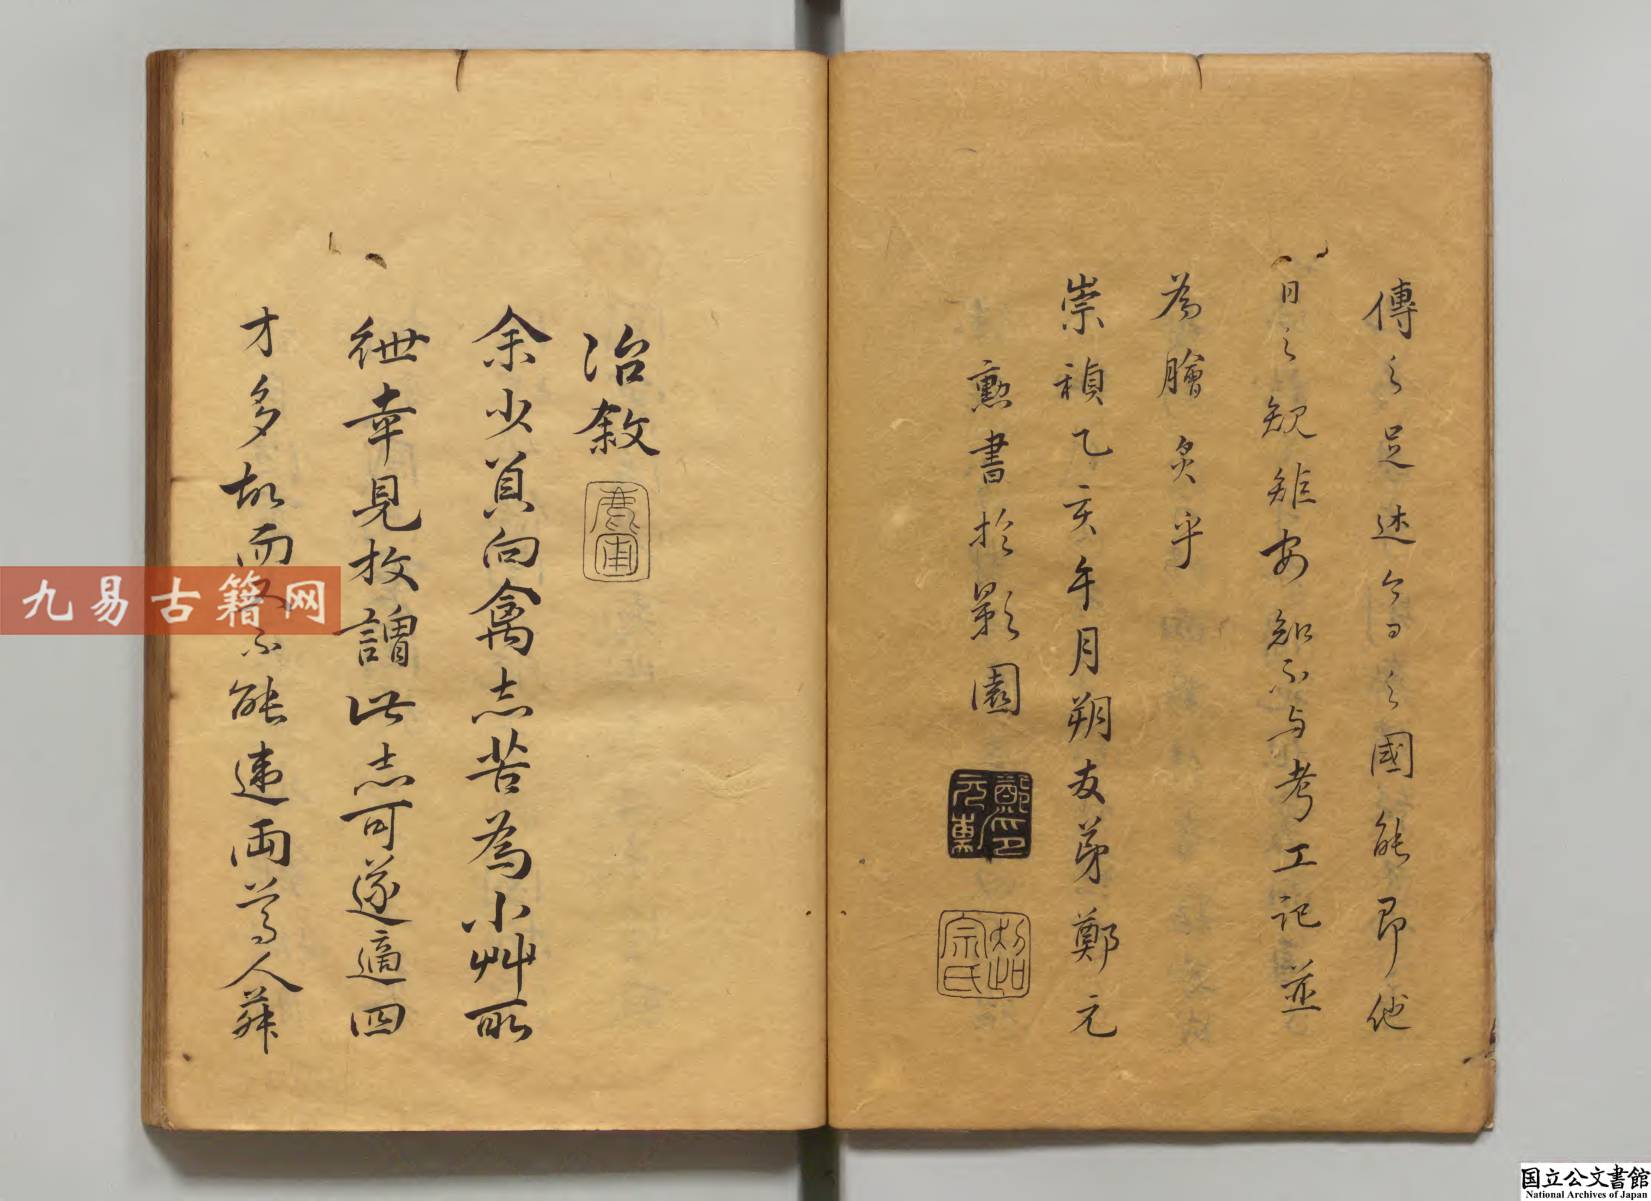 傳之足述今日之國能即他
日之規雖安知不与考工記並
為膾炙乎
崇禎乙亥年月朔友弟鄭元
勳書於影園
鄭元勳印
超宗氏
冶敘
余少負向禽志苦為小艸所
紲幸見放謂此志可遂適四
方多故而又不能違兩尊人菽
九易古籍网
国立公文書館
National Archives of Japan